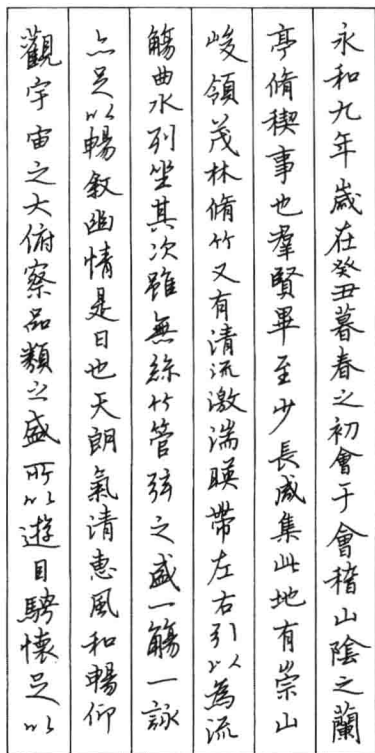 永和九年歲在癸丑暮春之初會于會稽山陰之蘭
亭脩稧事也羣賢畢至少長咸集此地有崇山
峻領茂林脩竹又有清流激湍暎帶左右引以為流
觴曲水列坐其次雖無絲竹管弦之盛一觴一詠
亦足以暢敘幽情是日也天朗氣清惠風和暢仰
觀宇宙之大俯察品類之盛所以遊目騁懷足以